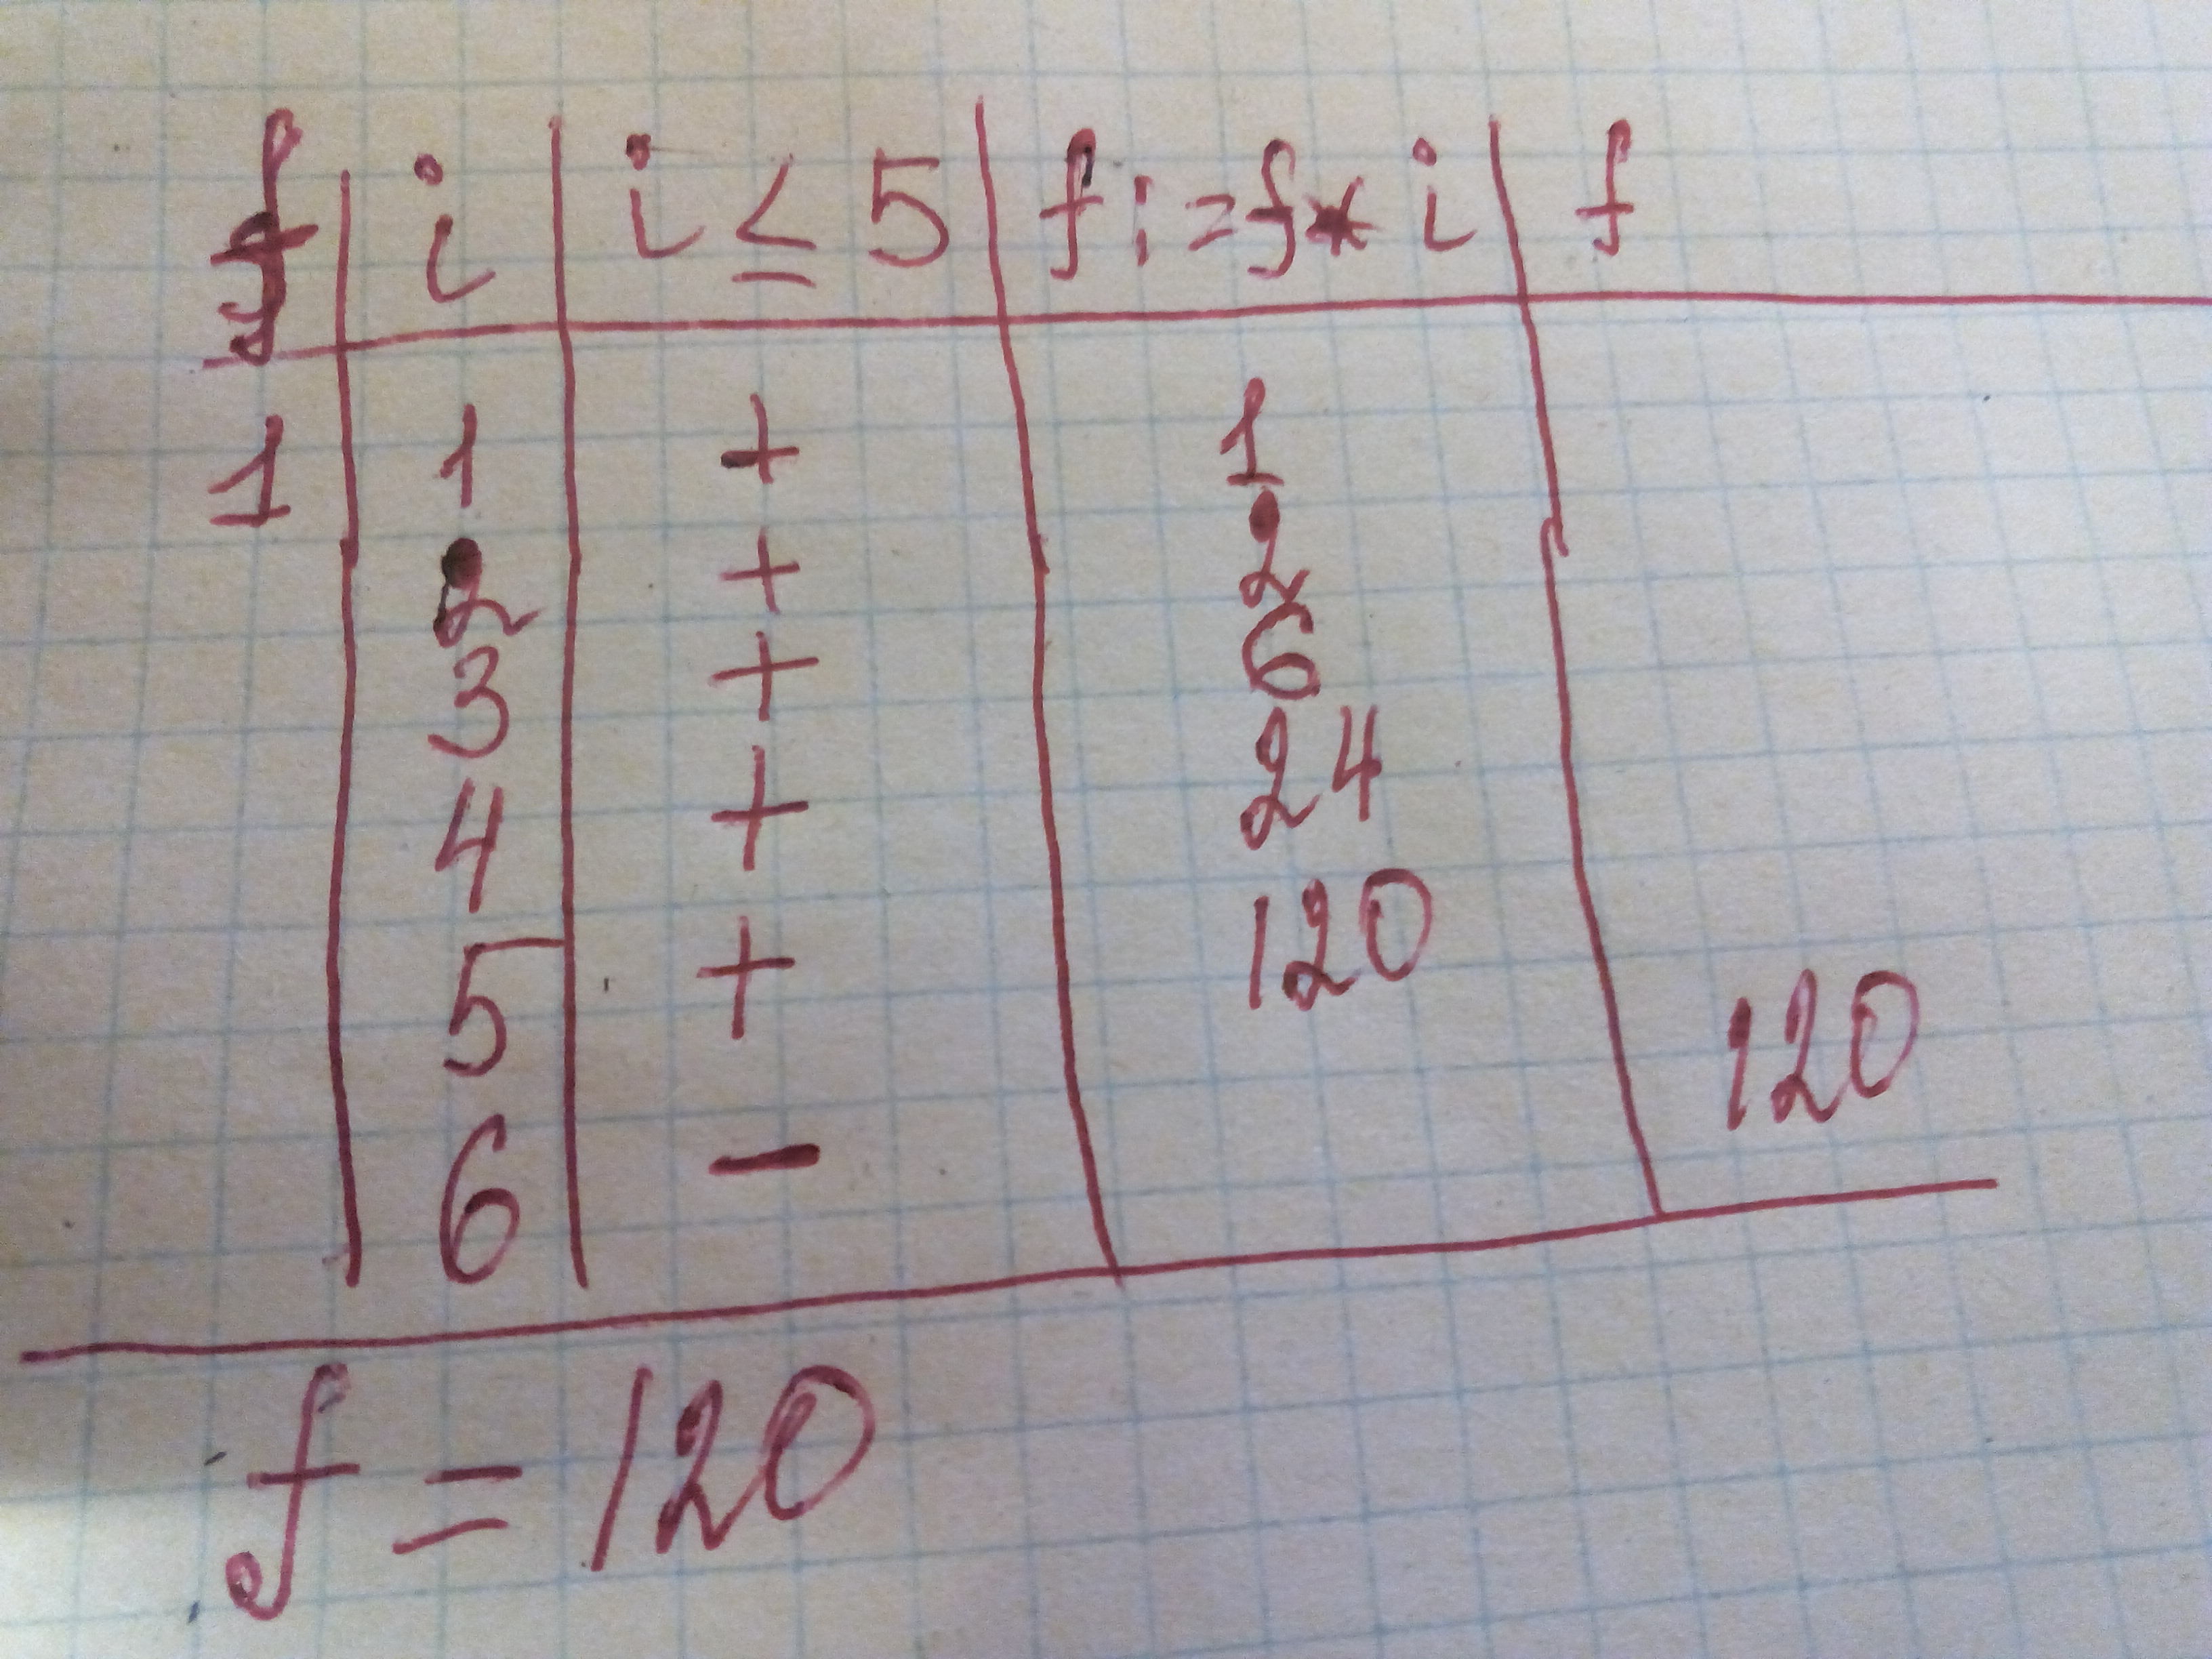 f i i ≤ 5 f := f * i f
1 1 + 1
2 + 2
3 + 6
4 + 24
5 + 120
6 - 120
f = 120